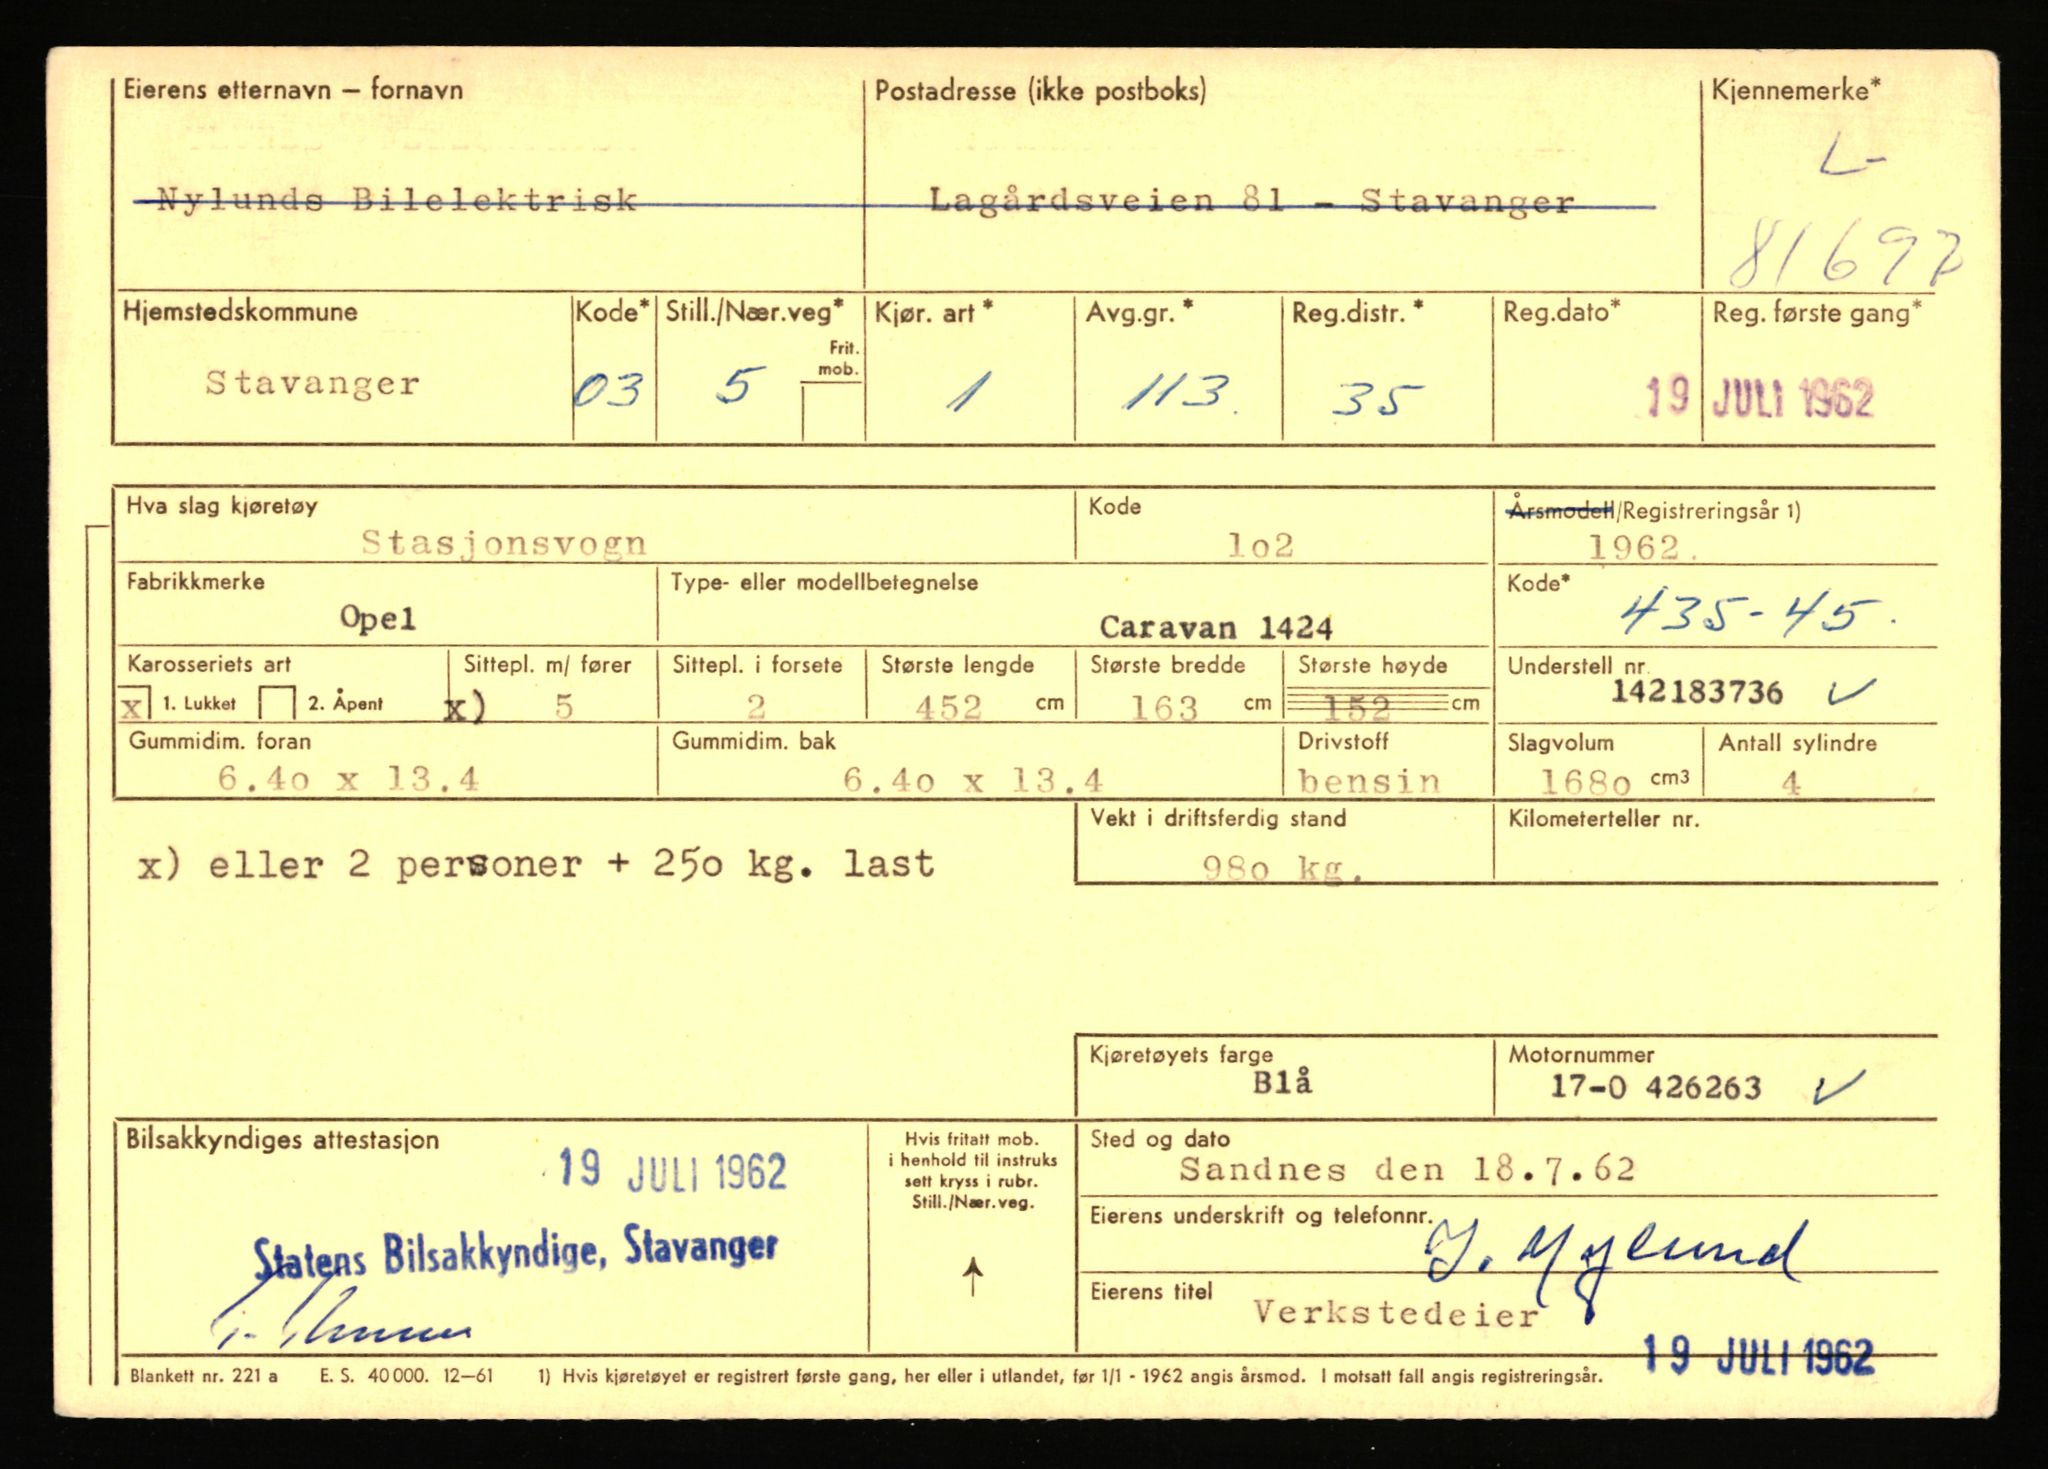 Eierens etternavn — fornavn Postadresse (ikke postboks) Kjennemerke*
L-
Nylunds Bilelektrisk Lagårdsveien 81 - Stavanger
81697
Hjemstedskommune Kode* Still./Nær.veg* Kjør. art* Avg.gr.* Reg.distr.* Reg.dato* Reg. første gang*
Frit.
mob.
Stavanger 03 5 1 113. 35 19 JULI 1962
Hva slag kjøretøy Kode Årsmodell/Registreringsår 1)
Stasjonsvogn lo2 1962.
Fabrikkmerke Type- eller modellbetegnelse Kode*
Opel Caravan 1424 435-45.
Karosseriets art Sittepl. m/ fører Sittepl. i forsete Største lengde Største bredde Største høyde Understell nr.
x 1. Lukket 2. Åpent x) 5 2 452 cm 163 cm 152 cm 142183736 ✓
Gummidim. foran Gummidim. bak Drivstoff Slagvolum Antall sylindre
6.4o x 13.4 6.4o x 13.4 bensin 168o cm3 4
Vekt i driftsferdig stand Kilometerteller nr.
x) eller 2 personer + 25o kg. last 98o kg.
Kjøretøyets farge Motornummer
Blå 17-0 426263 ✓
Bilsakkyndiges attestasjon Hvis fritatt mob. Sted og dato
i henhold til instruks
19 JULI 1962 sett kryss i rubr. Sandnes den 18.7.62
Still./Nær.veg.
Eierens underskrift og telefonnr.
Statens Bilsakkyndige, Stavanger J. Nylund
Eierens titel
Verkstedeier
19 JULI 1962
Blankett nr. 221 a E. S. 40 000. 12—61 1) Hvis kjøretøyet er registrert første gang, her eller i utlandet, før 1/1 - 1962 angis årsmod. I motsatt fall angis registreringsår.